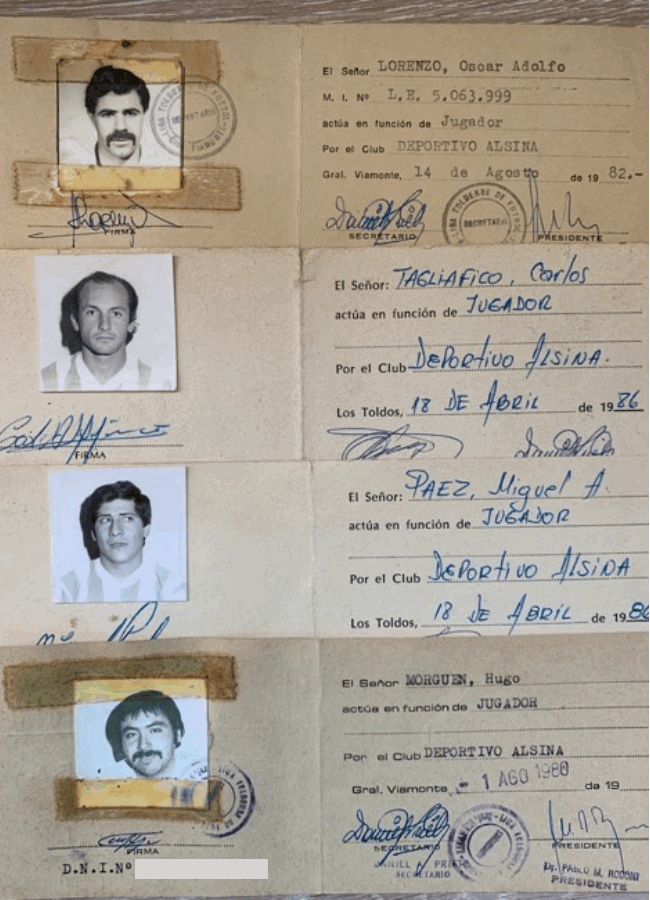 El Señor LORENZO, Oscar Adolfo
M. I. Nº L.E. 5.063.999
actúa en función de Jugador
Por el Club DEPORTIVO ALSINA
Gral. Viamonte, 14 de Agosto de 19 82.-
FIRMA
SECRETARIO
SECRETARIA
PRESIDENTE
El Señor: TAGLIAFICO, Carlos
actúa en función de JUGADOR
Por el Club DEPORTIVO ALSINA.
Los Toldos, 18 DE ABRIL de 19 86
FIRMA
El Señor: PAEZ, Miguel A.
actúa en función de JUGADOR
Por el Club DEPORTIVO ALSINA
Los Toldos, 18 DE ABRIL de 19 86
El Señor MORGUEN, Hugo
actúa en función de JUGADOR
Por el Club DEPORTIVO ALSINA
Gral. Viamonte, - 1 AGO 1980 de 19
FIRMA
SECRETARIO
PRESIDENTE
D.N.I.Nº
DANIEL A. PRIETO
SECRETARIO
Dr. PABLO M. RODONI
PRESIDENTE